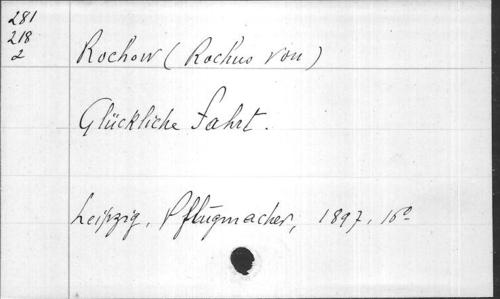 281
218
2
Rochow (Rochus von)
Glückliche Fahrt.
Leipzig, Pflugmacher, 1897, 16°